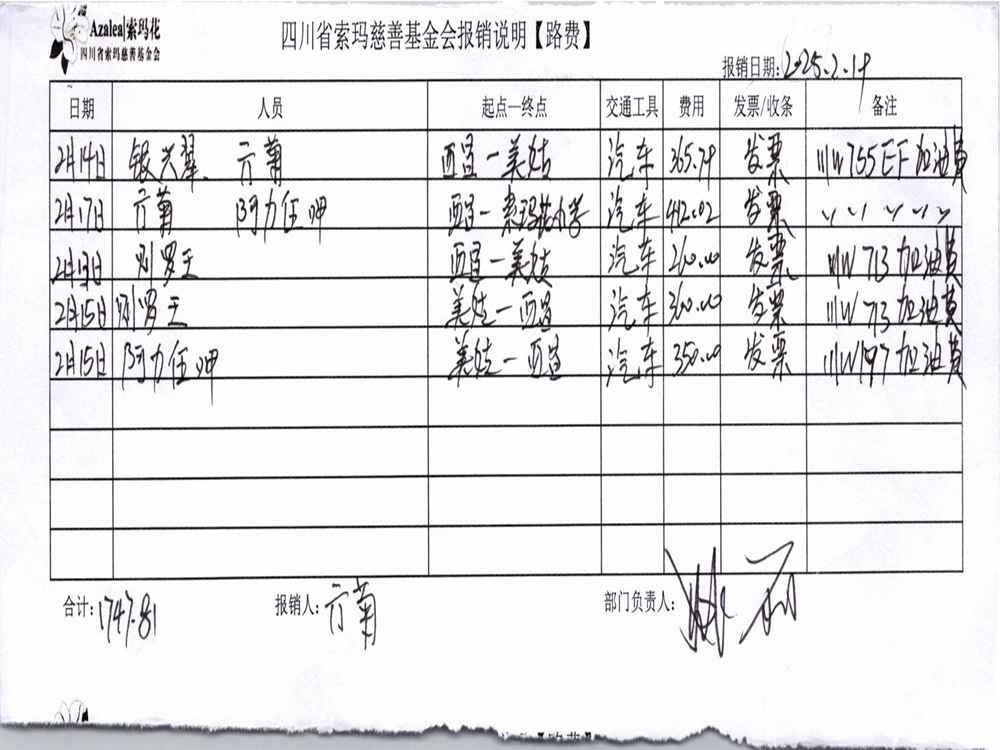 Azalea 索玛花
四川省索玛慈善基金会
四川省索玛慈善基金会报销说明【路费】
报销日期:2025.2.19
日期 人员 起点—终点 交通工具 费用 发票/收条 备注
2月14日 银兴翠、方菊 西昌—美姑 汽车 365.79 发票 川W755EF加油费
2月17日 方菊 阿力伍呷 西昌—索玛花小学 汽车 412.02 发票 〃 〃 〃 〃
2月13日 刘罗王 西昌—美姑 汽车 260.00 发票 川W713加油费
2月15日 刘罗王 美姑—西昌 汽车 360.00 发票 川W713加油费
2月15日 阿力伍呷 美姑—西昌 汽车 350.00 发票 川W197加油费
合计:1747.81 报销人:方菊 部门负责人: